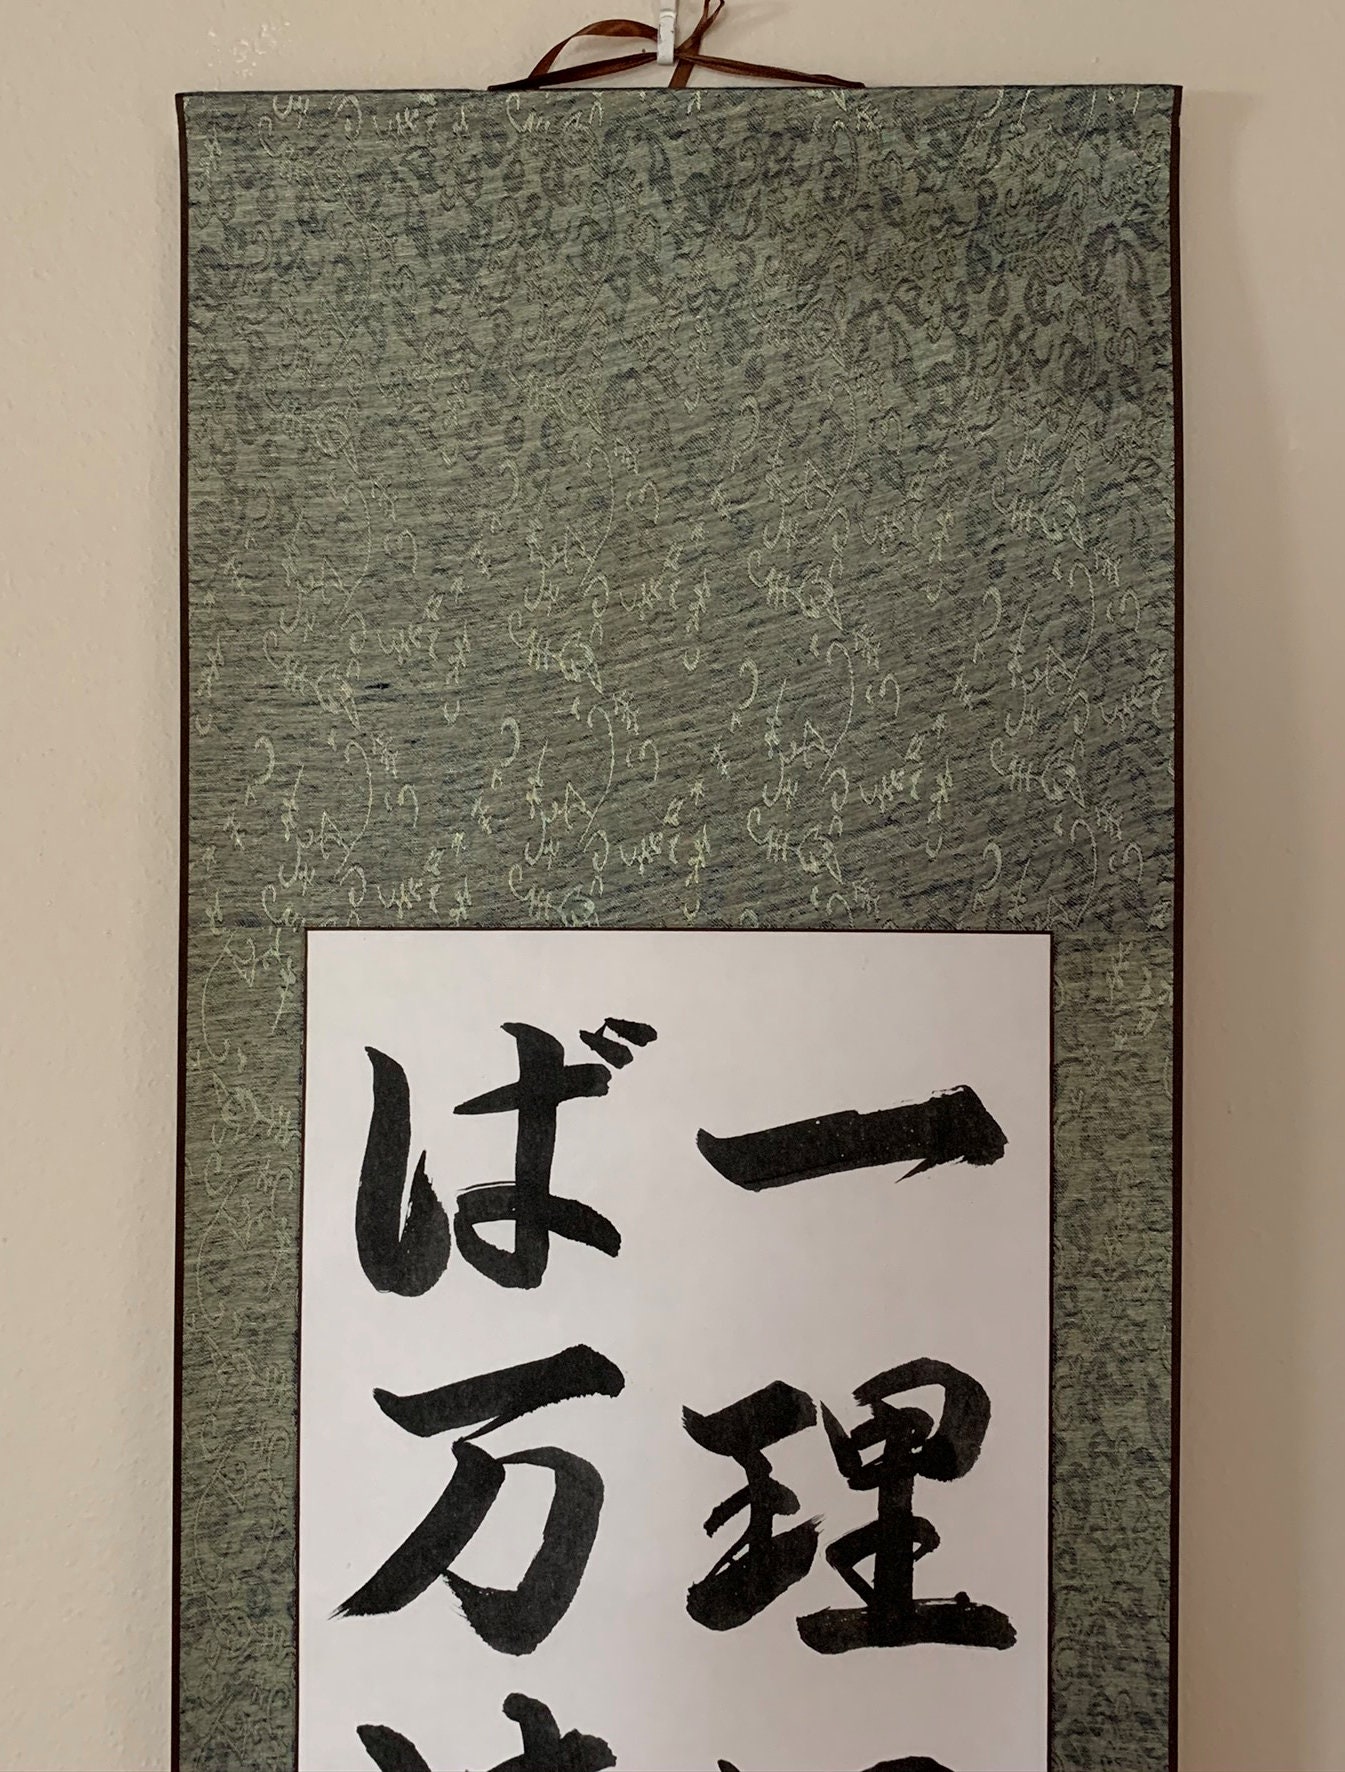 一理
ば万